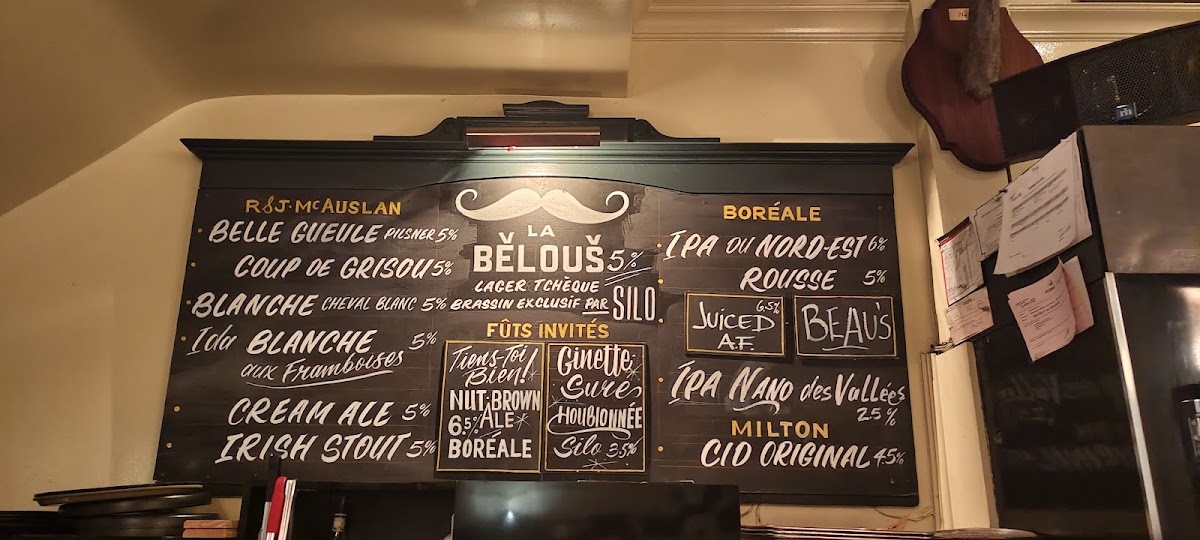 R&J. McAUSLAN
BELLE GUEULE PILSNER 5%
COUP DE GRISOU 5%
BLANCHE CHEVAL BLANC 5%
Ida BLANCHE 5%
aux Framboises
CREAM ALE 5%
IRISH STOUT 5%
LA
BĚLOUŠ 5%
LAGER TCHÈQUE
BRASSIN EXCLUSIF PAR SILO
FÛTS INVITÉS
Tiens-Toi
Bien!
NUT-BROWN
6.5% ALE
BORÉALE
Ginette
Sure
HOUBLONNÉE
Silo 3.5%
BORÉALE
IPA DU NORD-EST 6%
ROUSSE 5%
6.5%
JUICED
A.F.
BEAU'S
IPA NANO des Vallées
25%
MILTON
CID ORIGINAL 4.5%